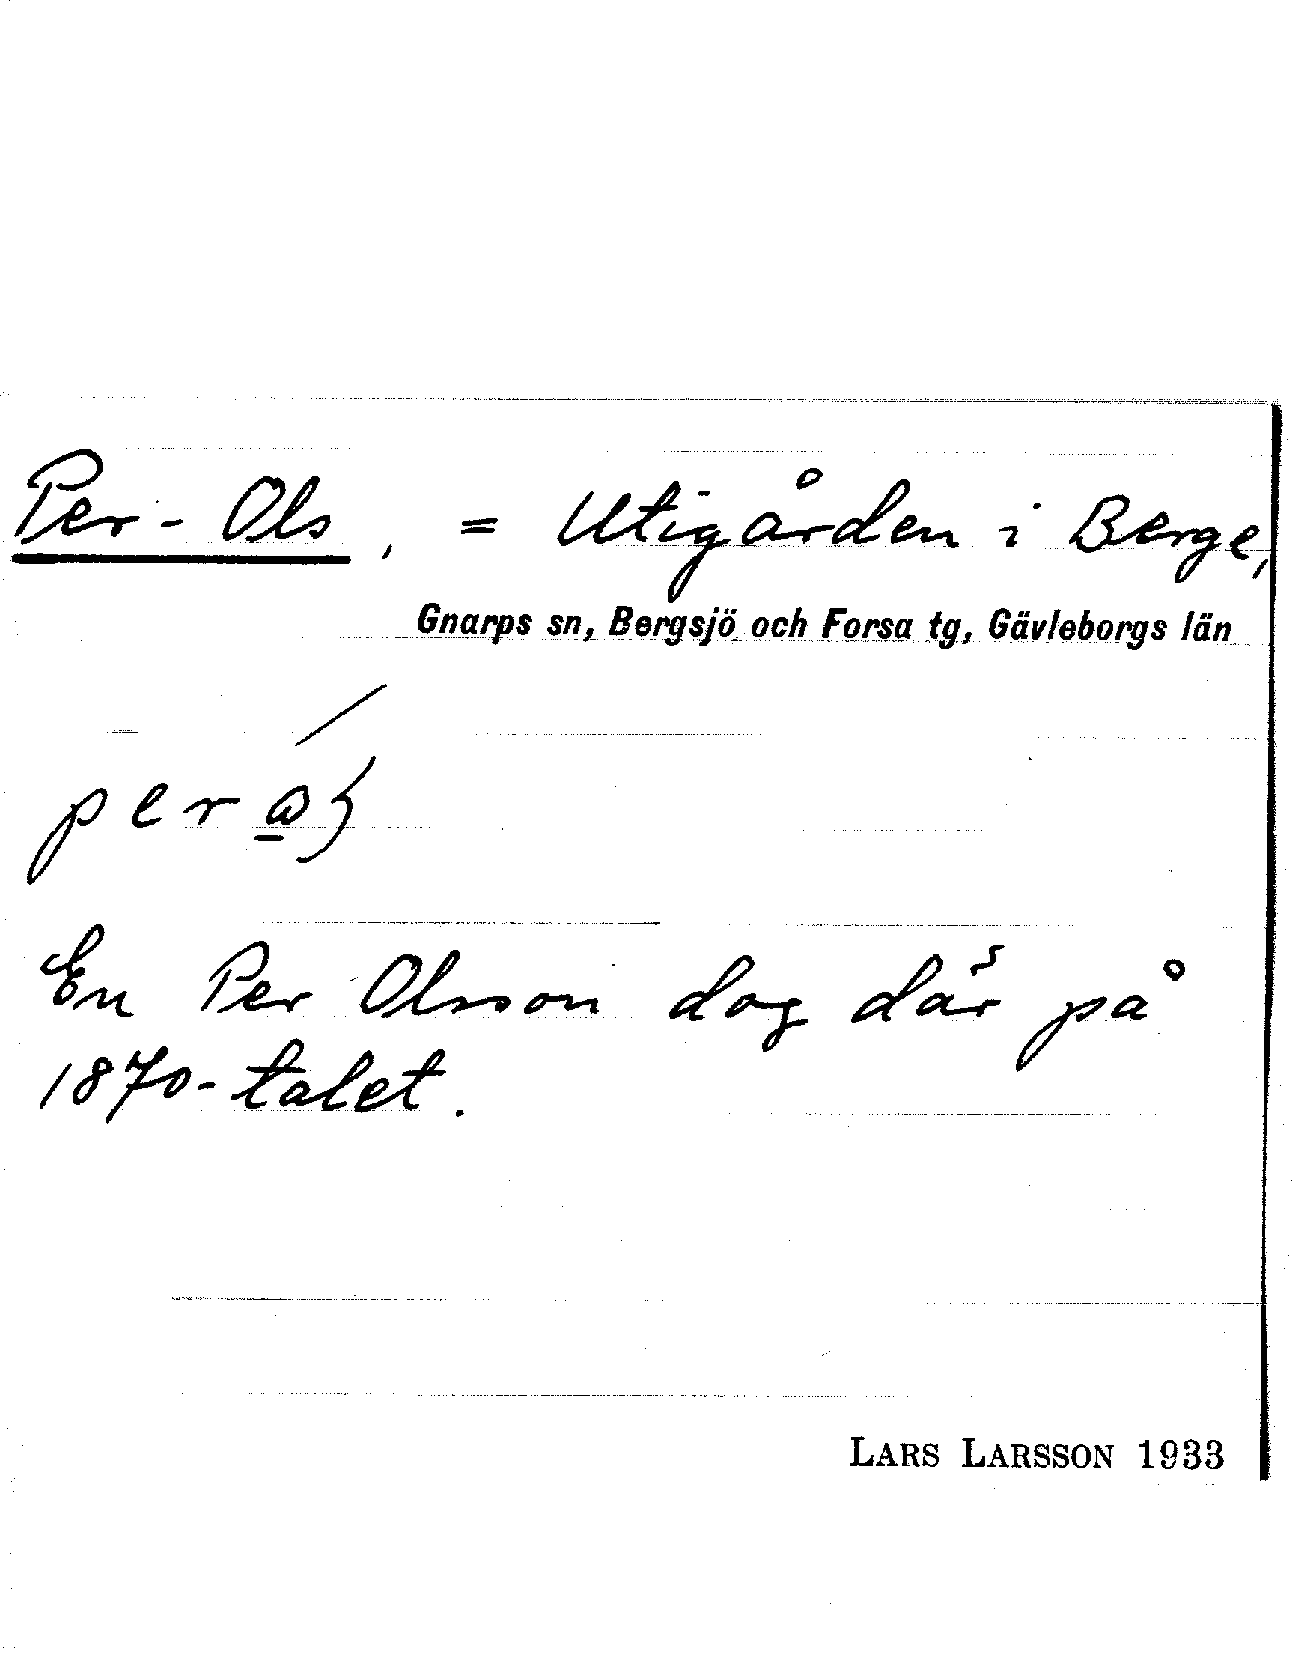 Per-Ols, = Utigården i Berge,
Gnarps sn, Bergsjö och Forsa tg, Gävleborgs län
En Per Olsson dog där på
1870-talet.
LARS LARSSON 1933